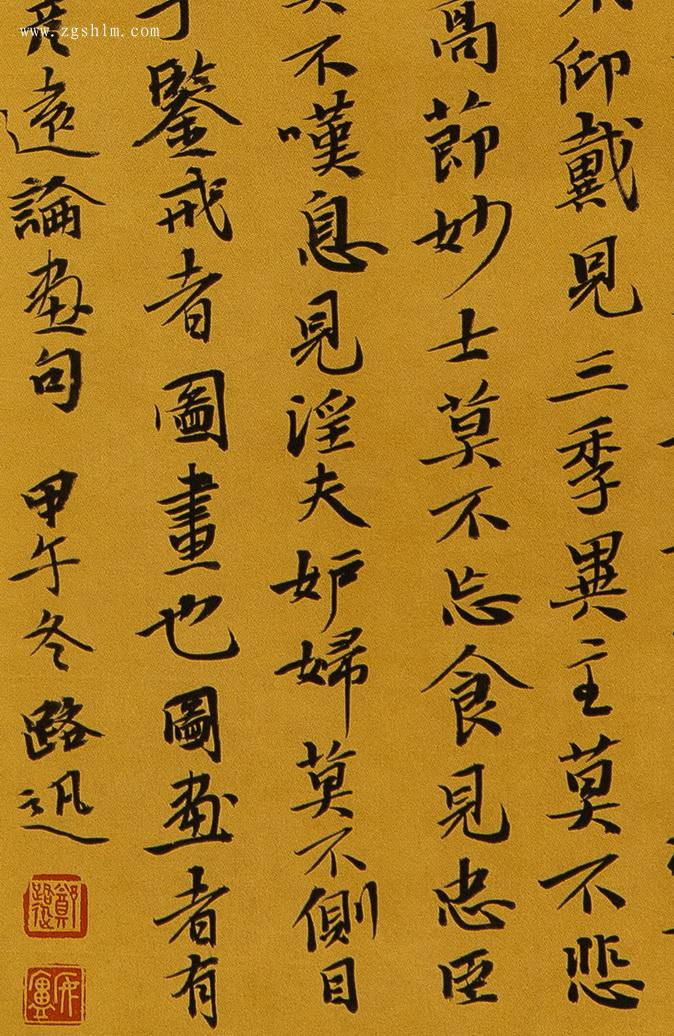 仰戴見三季異主莫不悲
高節妙士莫不忘食見忠臣
不嘆息見淫夫妒婦莫不側目
鑒戒者圖畫也圖畫者有
彥遠論畫句 甲午冬 路迅
www.zgshlm.com